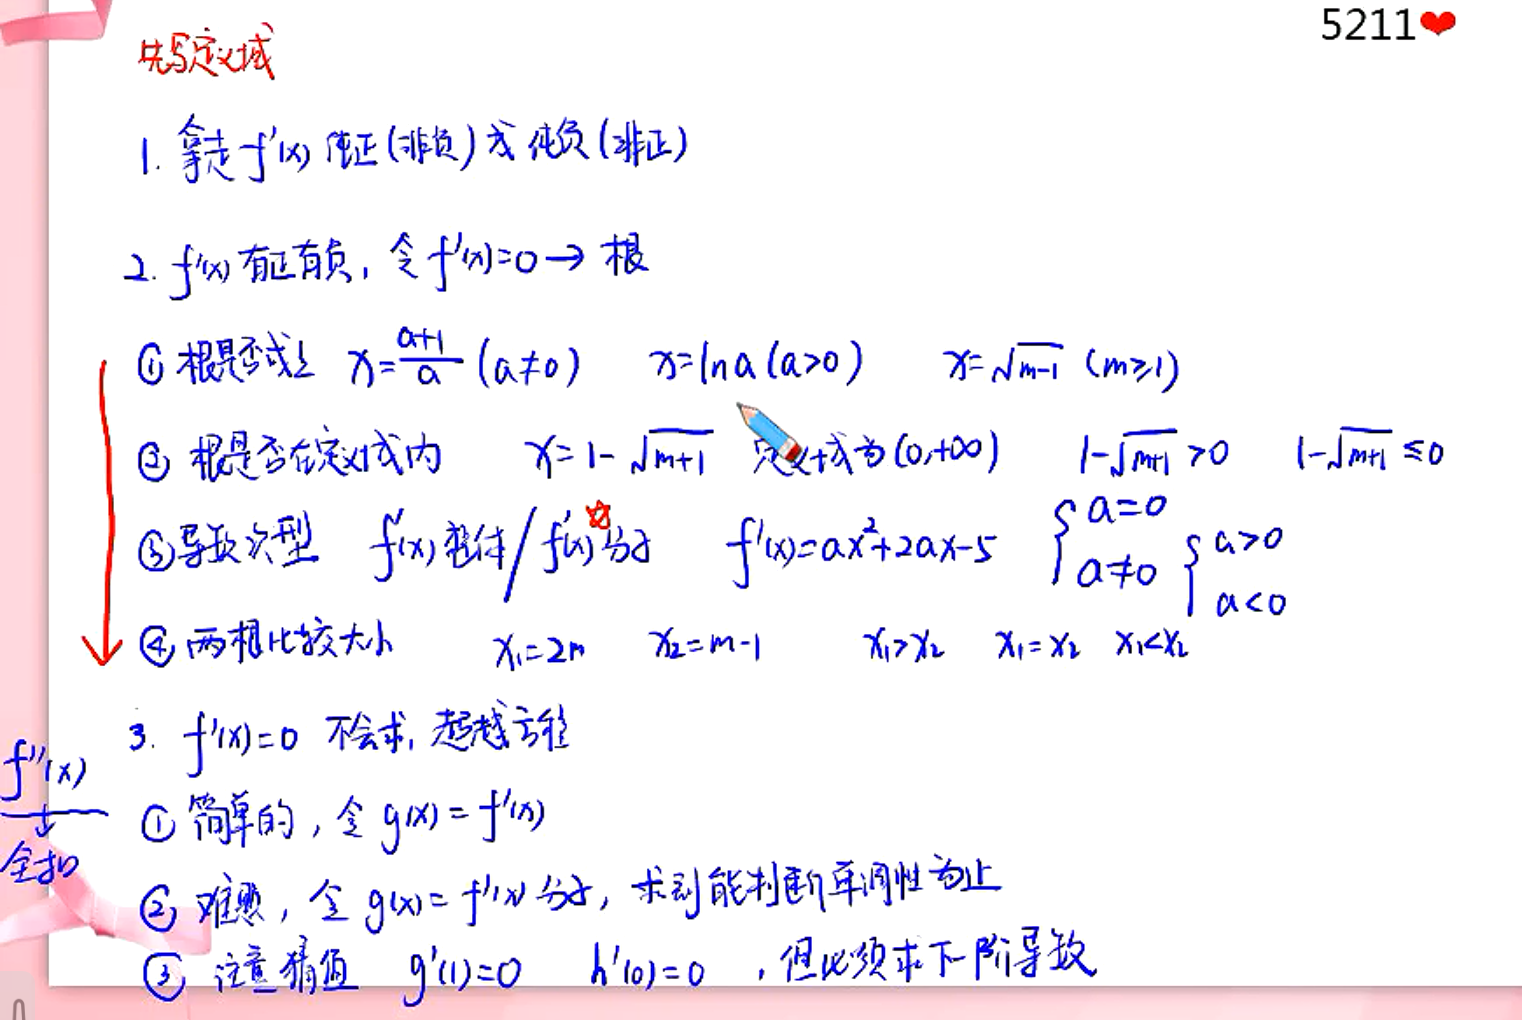 5211❤
先写定义域
1. 拿走f'(x)恒正(非负)或恒负(非正)
2. f'(x)有正有负, 令f'(x)=0→根
① 根是否成立 x=\frac{a+1}{a} (a≠0) x=lna(a>0) x=√(m-1) (m≥1)
② 根是否在定义域内 x=1-√(m+1) 定义域为(0,+∞) 1-√(m+1)>0 1-√(m+1)≤0
③ 导数次型 f'(x)整体/f'(x)☆分子 f'(x)=ax²+2ax-5 {a=0 a≠0 {a>0 a<0
④ 两根比较大小 x₁=2m x₂=m-1 x₁>x₂ x₁=x₂ x₁<x₂
3. f'(x)=0 不会求, 超越方程
① 简单的, 令g(x)=f'(x)
② 难题, 令g(x)=f'(x)分子, 求到能判断单调性为止
③ 注意猜值 g'(1)=0 h'(0)=0 , 但必须求下一阶导数
f''(x)
↓
全扣